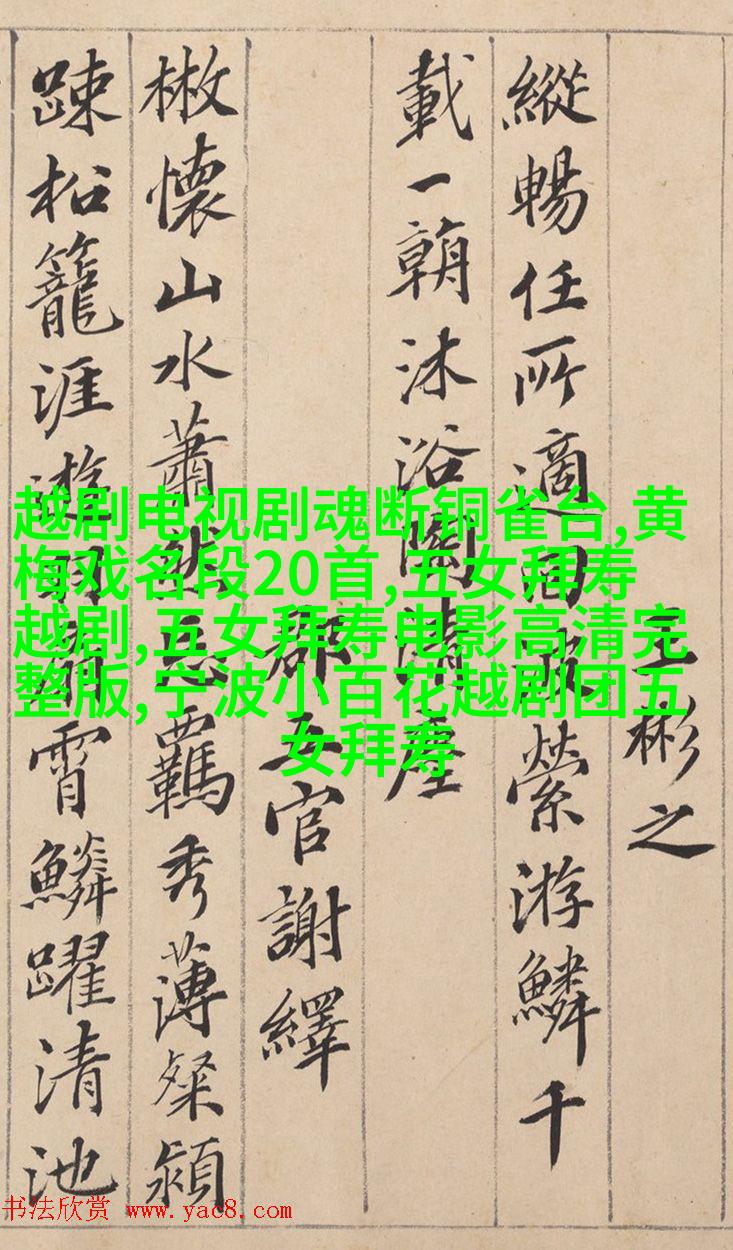 王彬之
縱暢任所適回波縈游鱗千
載一朝沐浴陶清塵
郡五官謝繹
散懷山水蕭然忘羈秀薄粲穎
踈松籠涯遊羽扇霄鱗躍清池
越剧电视剧魂断铜雀台,黄
梅戏名段20首,五女拜寿
越剧,五女拜寿电影高清完
整版,宁波小百花越剧团五
女拜寿
书法欣赏 www.yac8.com